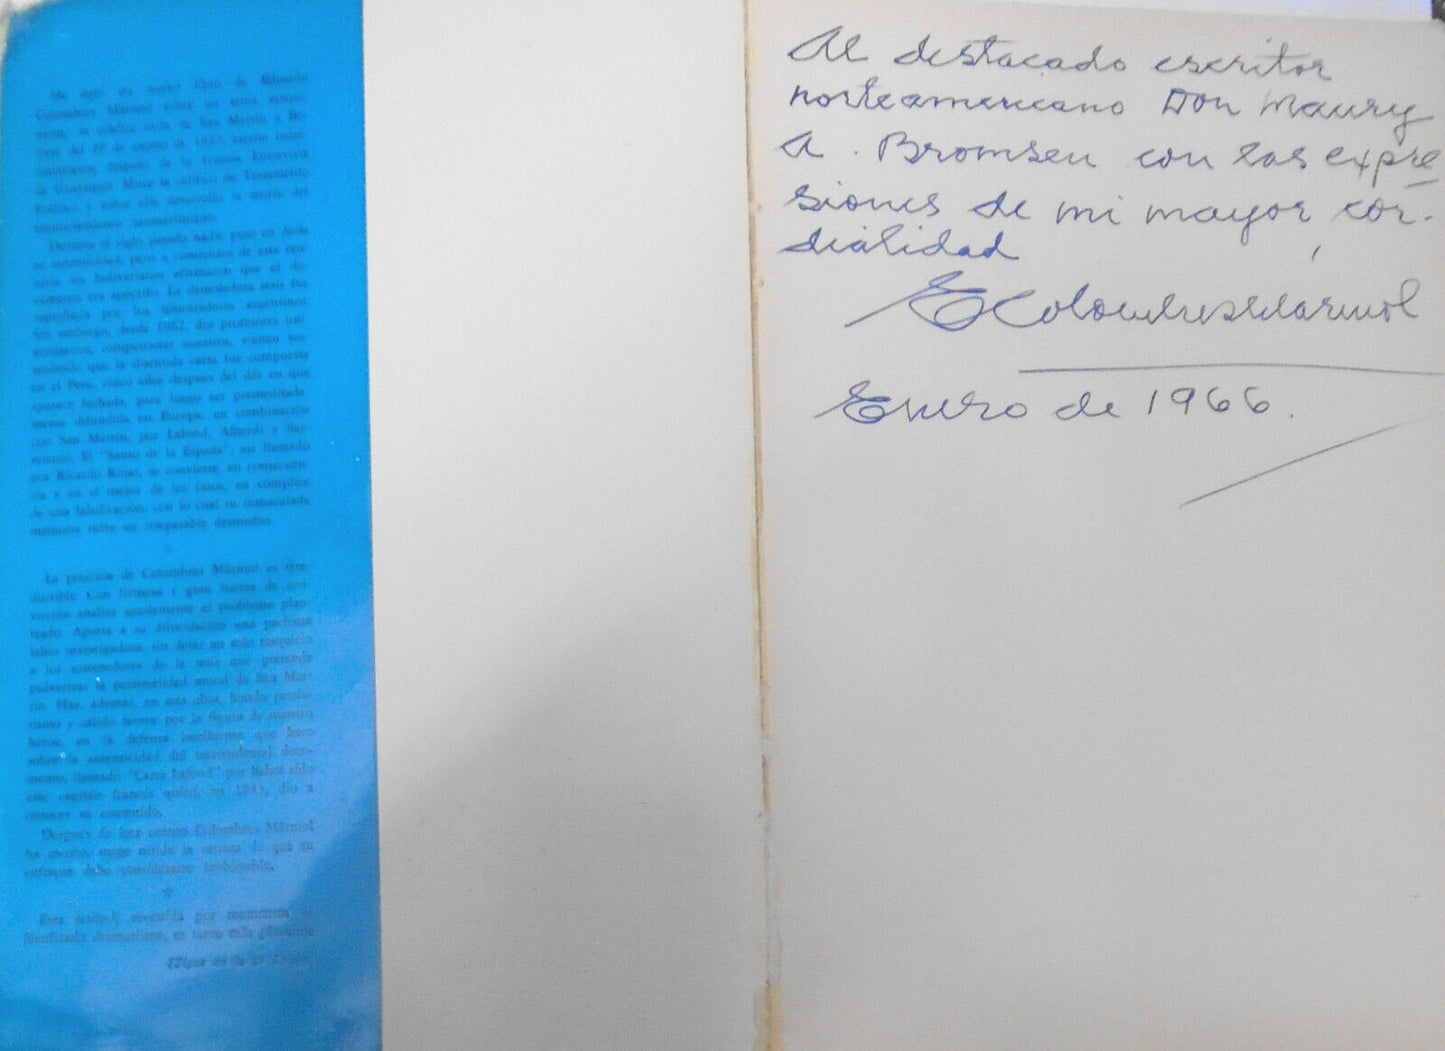 He aquí un nuevo libro de Eduardo
Colombres Mármol sobre un tema apasio-
nante, la célebre carta de San Martín a Bo-
lívar del 29 de agosto de 1822, escrita inme-
diatamente después de la famosa Entrevista
de Guayaquil. Mitre la calificó de Testamento
Político y sobre ella desarrolló la teoría del
renunciamiento sanmartiniano.
Durante el siglo pasado nadie puso en duda
su autenticidad, pero a comienzos de esta cen-
turia los bolivarianos afirmaron que el do-
cumento era apócrifo. La demoledora tesis fue
repudiada por los historiadores argentinos.
Sin embargo, desde 1962, dos profesores uni-
versitarios, compatriotas nuestros, vienen sos-
teniendo que la discutida carta fue compuesta
en el Perú, cinco años después del día en que
aparece fechada, para luego ser premeditada-
mente difundida en Europa, en combinación
con San Martín, por Lafond, Alberdi y Sar-
miento. El "Santo de la Espada", así llamado
por Ricardo Rojas, se convierte, en consecuen-
cia y en el mejor de los casos, en cómplice
de una falsificación, con lo cual su inmaculada
memoria sufre un irreparable desmedro.
La posición de Colombres Mármol es irre-
ductible. Con firmeza y gran fuerza de con-
vicción analiza agudamente el problema plan-
teado. Aporta a su dilucidación una paciente
labor investigadora, sin dejar un solo resquicio
a los sostenedores de la tesis que pretende
pulverizar la personalidad moral de San Mar-
tín. Hay, además, en esta obra, hondo patrio-
tismo y cálido fervor por la figura de nuestro
héroe, en la defensa inteligente que hace
sobre la autenticidad del trascendental docu-
mento, llamado "Carta Lafond" por haber sido
este capitán francés quien, en 1843, dio a
conocer su contenido.
Después de leer cuanto Colombres Mármol
ha escrito, surge nítida la certeza de que su
enfoque debe considerarse inobjetable.
Esta actitud, revestida por momentos de
justificado dramatismo, es tanto más plausible
(Sigue en la 2ª
Al destacado escritor
norteamericano Don Maury
A. Bromsen con las expre
siones de mi mayor cor-
dialidad
E Colombres Mármol
Enero de 1966.